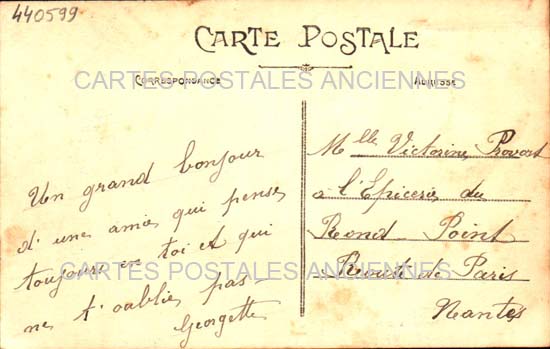 440599
CARTE POSTALE
CARTES POSTALES ANCIENNES
CORRESPONDANCE
ADRESSE
Un grand bonjour
d'une amie qui pense
toujours en toi et qui
ne t'oublie pas-
Georgette
Mlle Victorine Provost
à l'Epicerie du
Rond Point
Route de Paris
Nantes
CARTES POSTALES ANCIENNES